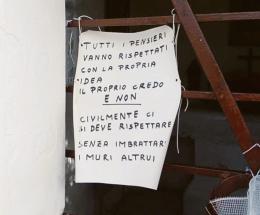 TUTTI I PENSIERI
VANNO RISPETTATI
CON LA PROPRIA
IDEA
IL PROPRIO CREDO
E NON
CIVILMENTE CI
SI DEVE RISPETTARE
SENZA IMBRATTARE
I MURI ALTRUI